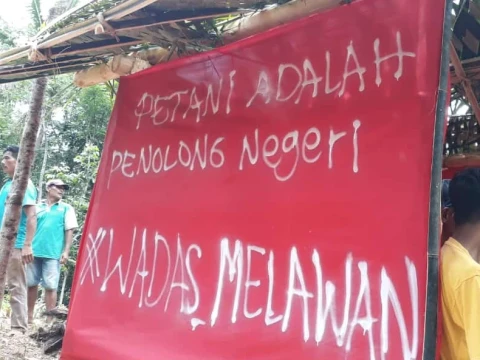 PETANI ADALAH
PENOLONG Negeri
#WADAS_MELAWAN